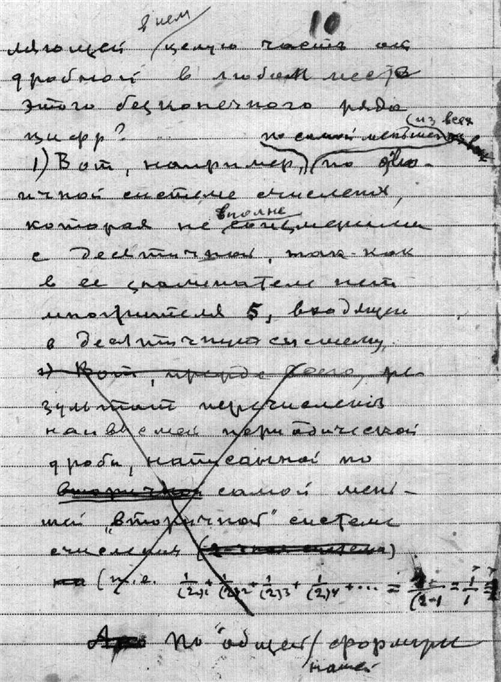 в нем
10
ляющей целую часть от
дробной в любом месте
этого бесконечного ряда
цифр?
(из всех
по самой меньшей
1) Вот, например, по дво-
ичной системе счисления,
вполне
которая не соизмерима
с десятичной, так как
в ее знаменателе нет
множителя 5, входящего
в десятичную систему.
2) Вот, прежде всего, ре-
зультат перечисления
периодической
дроби, написанной по
вторичной самой мень-
шей "вторичной" системе
счисления
(т.е. 1/(2)1 + 1/(2)2 + 1/(2)3 + 1/(2)4 + ... = 1/(2-1 = 1/1
По "общей формуле
нашей